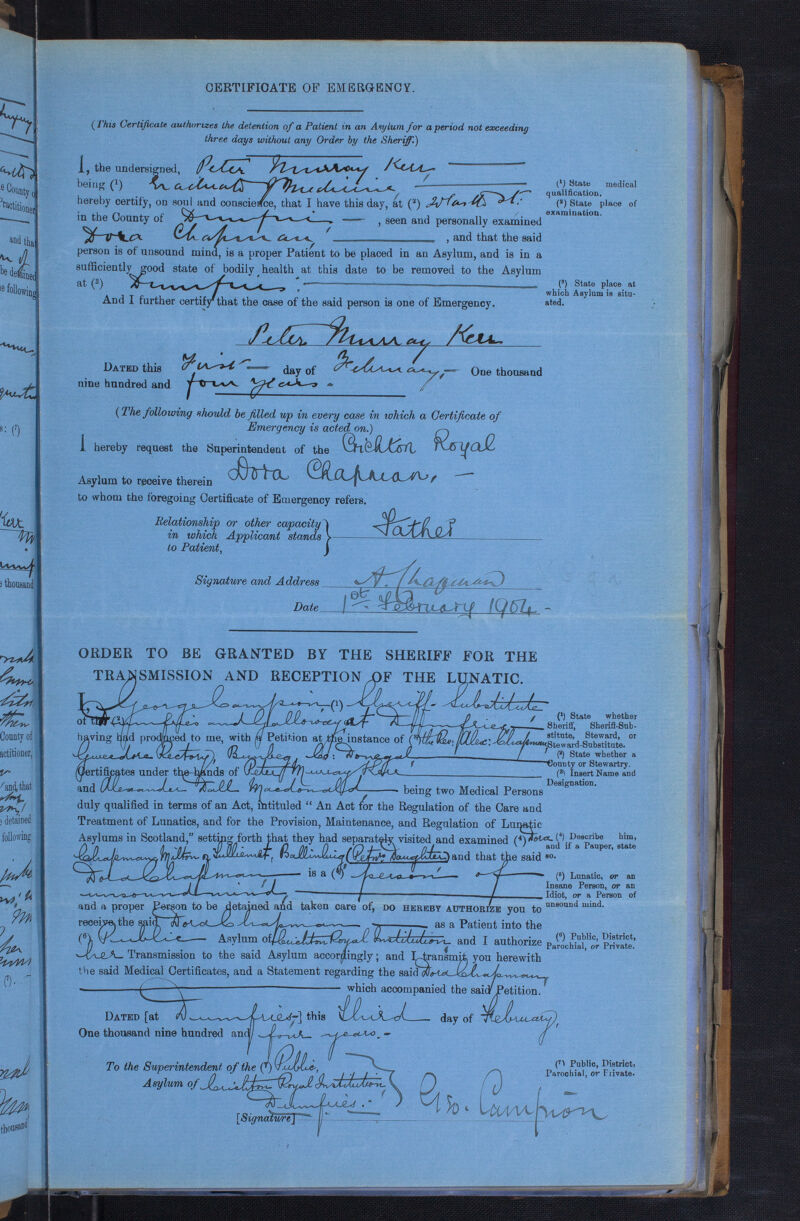 CERTIFICATE OF EMERGENCY.
(This Certificate authorizes the detention of a Patient in an Asylum for a period not exceeding
three days without any Order by the Sheriff.)
I, the undersigned, Peter Murray Kerr
being (1) Graduate of Medicine
hereby certify, on soul and conscience, that I have this day, at (2) St.
in the County of Dumfries, seen and personally examined
Dora Chapman, and that the said
person is of unsound mind, is a proper Patient to be placed in an Asylum, and is in a
sufficiently good state of bodily health at this date to be removed to the Asylum
at (3) Dumfries.
And I further certify that the case of the said person is one of Emergency.
(1) State medical
qualification.
(2) State place of
examination.
(3) State place at
which Asylum is situ-
ated.
Peter Murray Kerr
DATED this First day of February, One thousand
nine hundred and four years.
(The following should be filled up in every case in which a Certificate of
Emergency is acted on.)
I hereby request the Superintendent of the Crichton Royal
Asylum to receive therein Dora Chapman,
to whom the foregoing Certificate of Emergency refers.
Relationship or other capacity
in which Applicant stands } Father
to Patient,
Signature and Address A. Chapman
Date 1st February 1904
ORDER TO BE GRANTED BY THE SHERIFF FOR THE
TRANSMISSION AND RECEPTION OF THE LUNATIC.
I, George Campion, (1) Sheriff-Substitute
of the (2) Dumfries and Galloway at Dumfries
having had produced to me, with a Petition at the instance of (3) the Rev: Alex: Chapman
Gweedore Rectory, Bunbeg, Co: Donegal
Certificates under the hands of Peter Murray Kerr
and Alexander Macdonald being two Medical Persons
duly qualified in terms of an Act, intituled "An Act for the Regulation of the Care and
Treatment of Lunatics, and for the Provision, Maintenance, and Regulation of Lunatic
Asylums in Scotland," setting forth that they had separately visited and examined (4) Dora
Chapman, Milton of, Ballinluig (Petrs. Daughter) and that the said
Dora Chapman is a (5) person of
unsound mind,
and a proper Person to be detained and taken care of, DO HEREBY AUTHORIZE you to
receive the said Dora Chapman as a Patient into the
(6) Public Asylum of Crichton Royal Institution and I authorize
her Transmission to the said Asylum accordingly; and I transmit you herewith
the said Medical Certificates, and a Statement regarding the said Dora Chapman
which accompanied the said Petition.
DATED [at Dumfries] this Third day of February,
One thousand nine hundred and four years.
(1) State whether
Sheriff, Sheriff-Sub-
stitute, Steward, or
Steward-Substitute.
(2) State whether a
County or Stewartry.
(3) Insert Name and
Designation.
(4) Describe him,
and if a Pauper, state
so.
(5) Lunatic, or an
Insane Person, or an
Idiot, or a Person of
unsound mind.
(6) Public, District,
Parochial, or Private.
To the Superintendent of the (7) Public,
Asylum of Crichton Royal Institution
Dumfries.
[Signature] Geo. Campion
(7) Public, District,
Parochial, or Private.